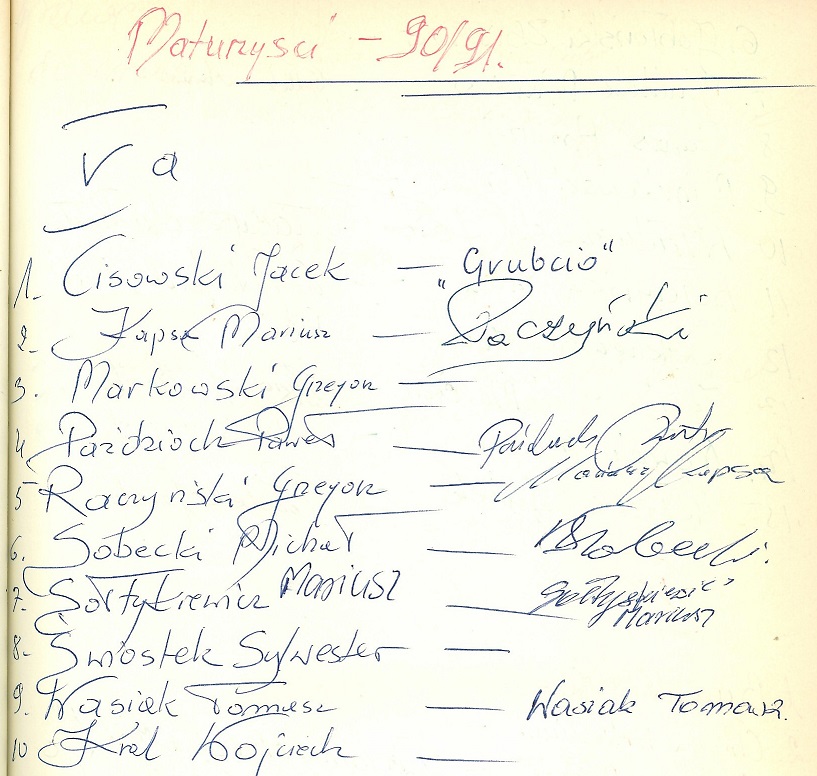 Maturzyści - 90/91.
V a
1. Cisowski Jacek — „Grubcio"
2. Kapsa Mariusz — Raczyński
3. Markowski Grzegorz —
4. Paździoch Paweł —
5 Raczyński Grzegorz — Mariusz Kapsa
6. Sobecki Michał — MSobecki.
7. Sołtykiewicz Mariusz — Sołtykiewicz Mariusz
8. Śmiostek Sylwester —
9. Wasiak Tomasz — Wasiak Tomasz.
10 Król Wojciech —